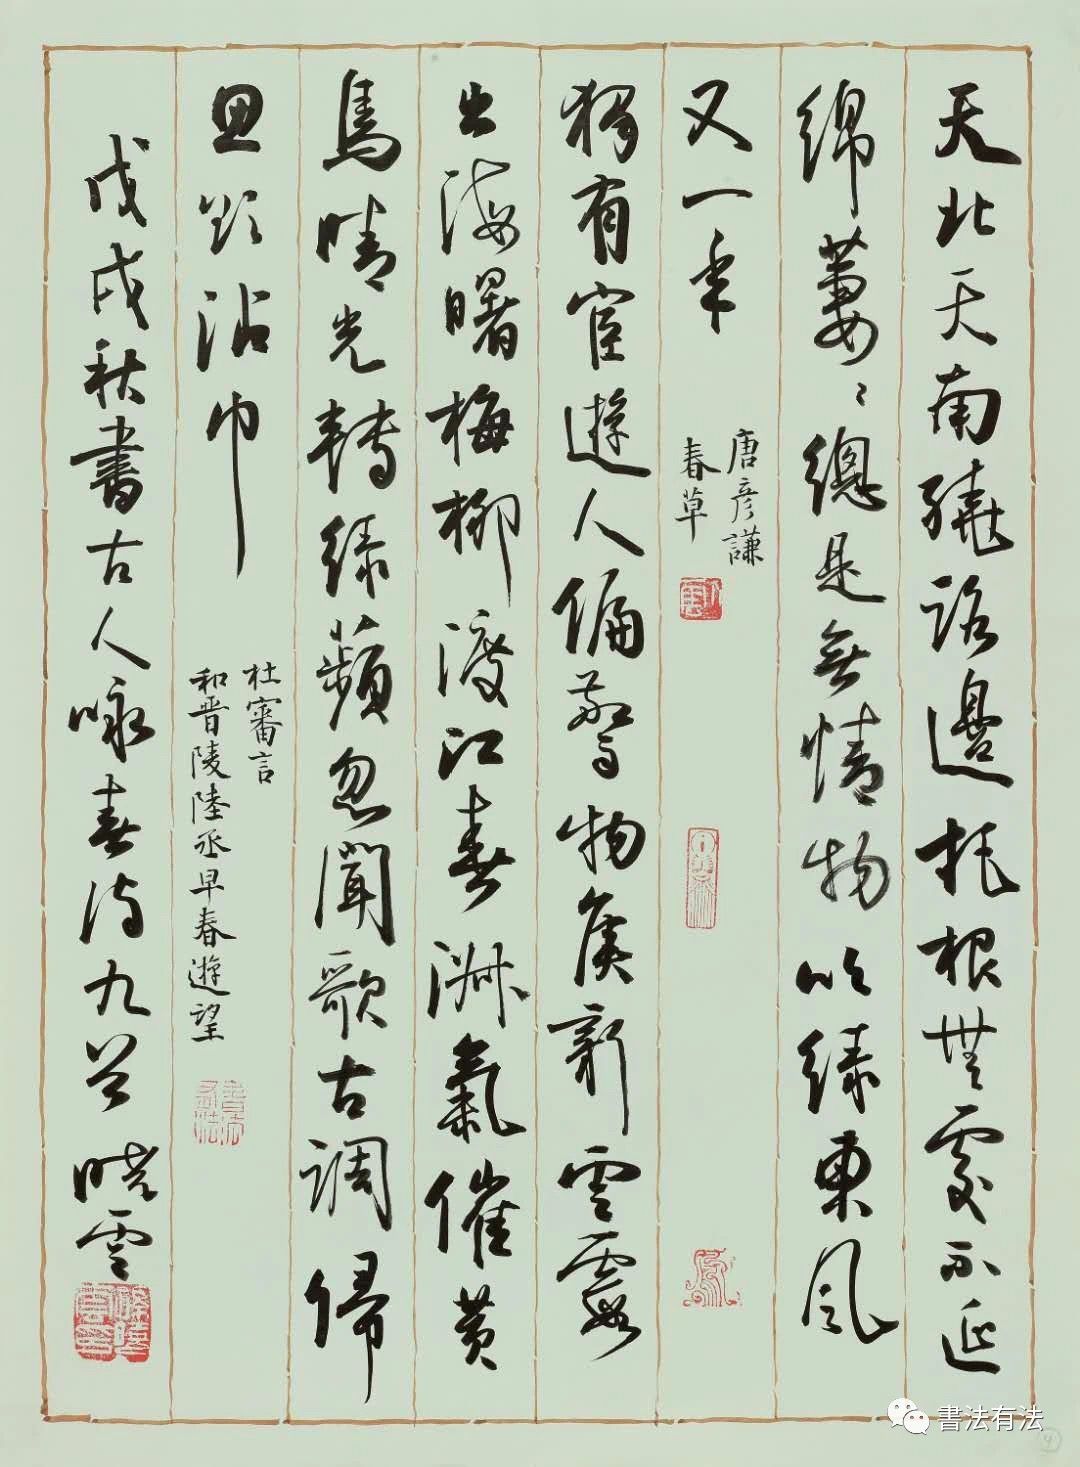 天北天南繞路邊托根無處不延
綿萋〻總是無情物吹綠東風
又一年
唐彥謙
春草
獨有宦遊人偏驚物候新雲霞
出海曙梅柳渡江春淑氣催黃
鳥晴光轉綠蘋忽聞歌古調歸
思欲沾巾
杜審言
和晋陵陸丞早春遊望
戊戌秋書古人咏春詩九首 曉雲
書法有法